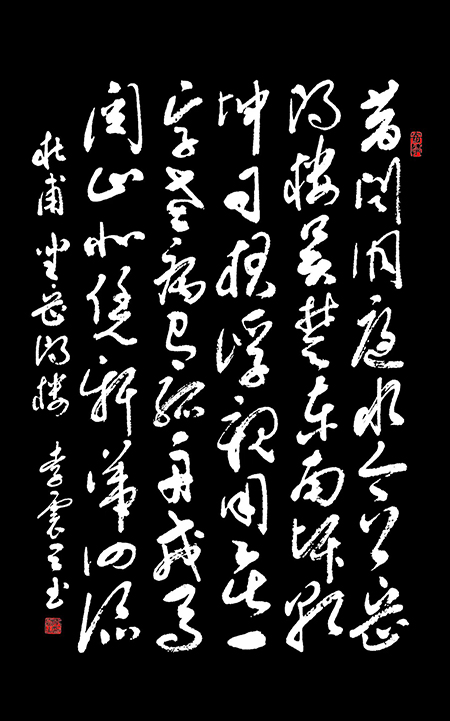 昔闻洞庭水今上岳
阳楼吴楚东南坼乾
坤日夜浮親朋无一
字老病有孤舟戎马
关山北凭轩涕泗流
杜甫登岳阳楼 李震书